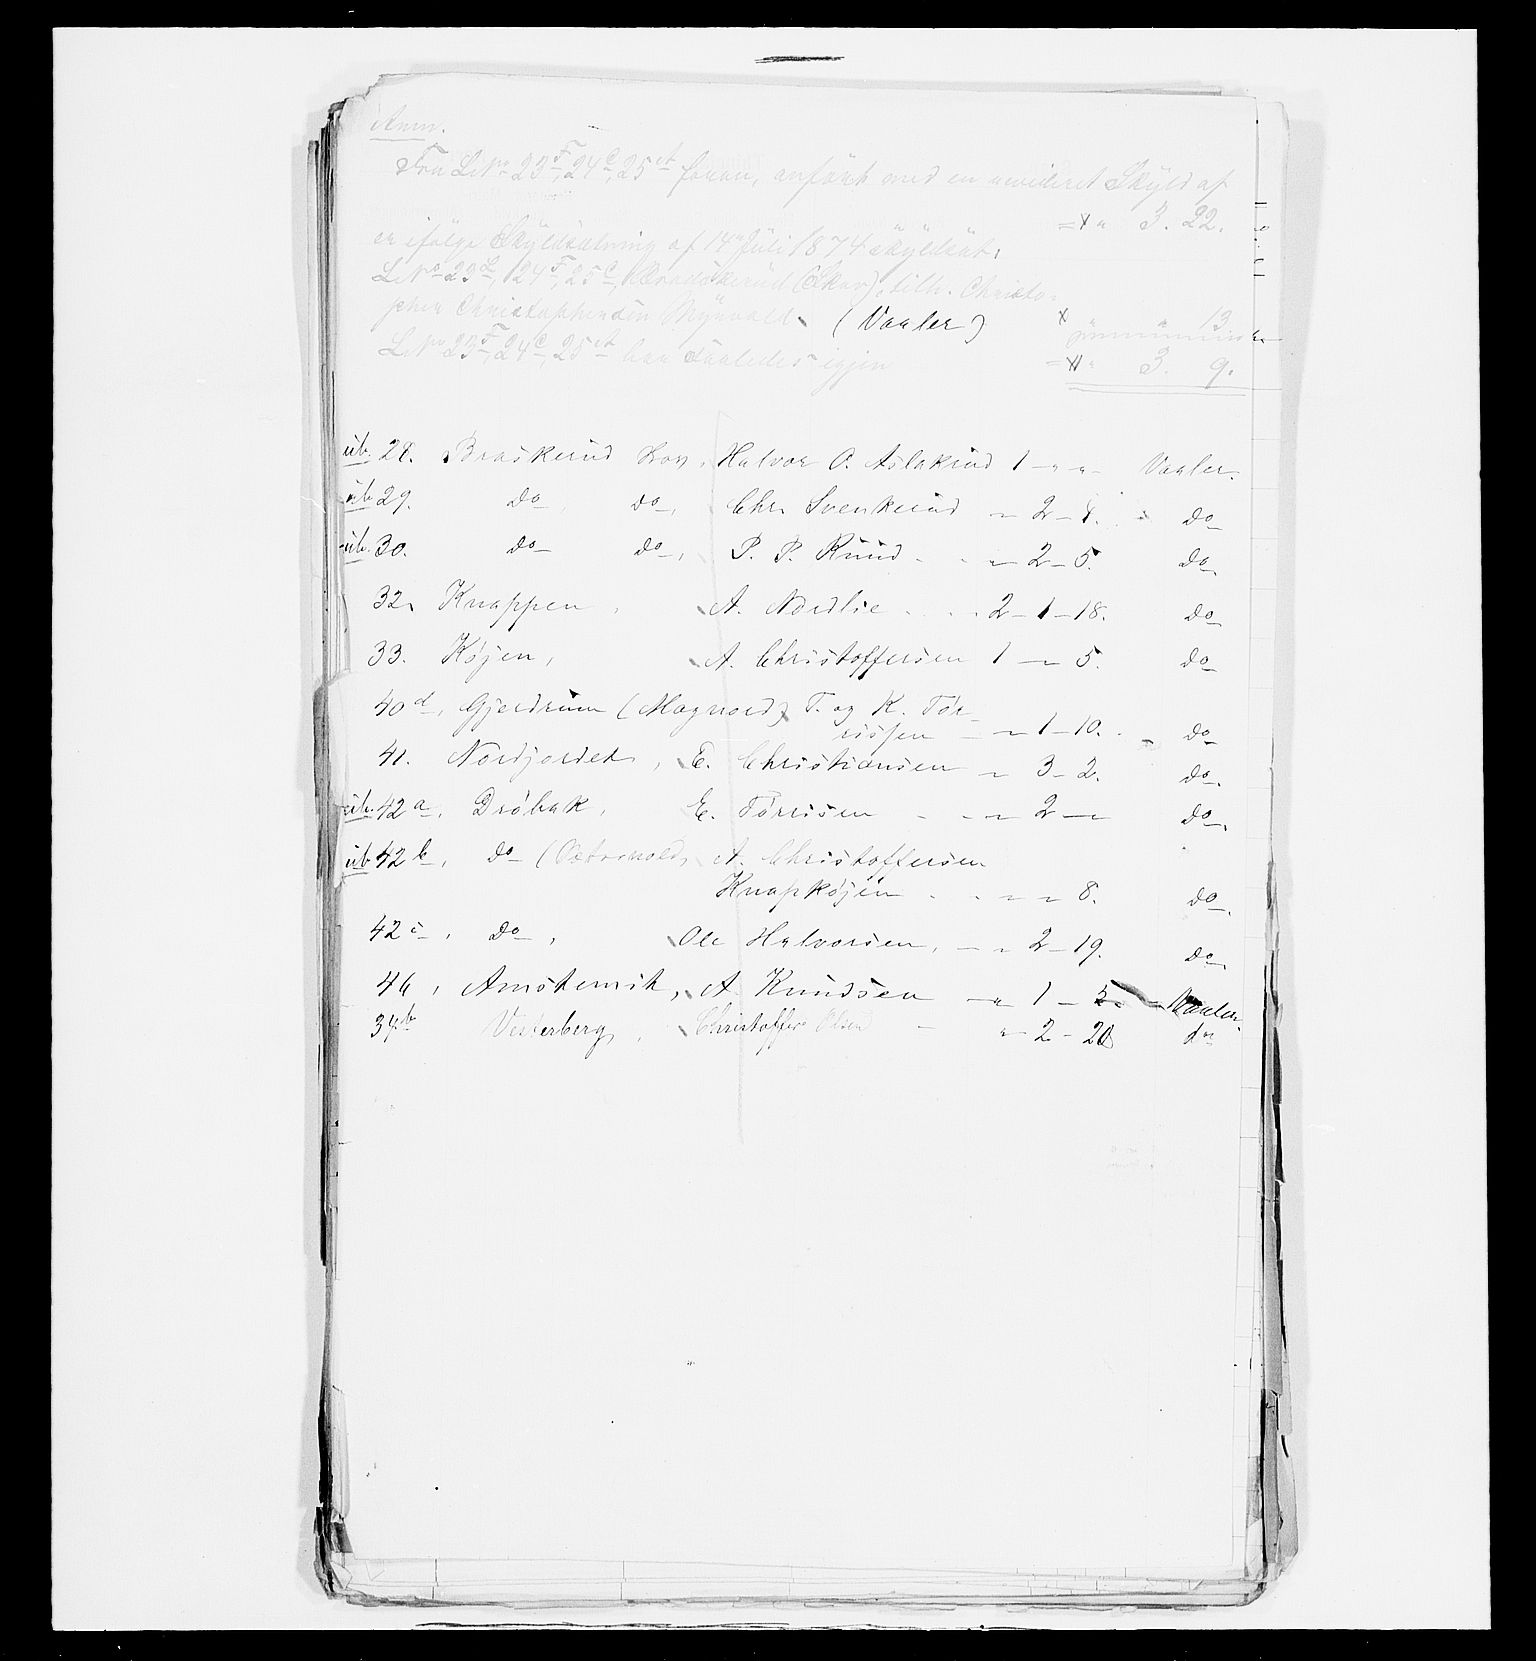 Anm.
Fra L№ 23F, 24C, 25A foran, anført med en revideret Skyld af
= x " 3. 22.
er ifølge Skyldsætning af 14de Juli 1874 skyldsat:
L.No 23L, 24F, 25C, Braaskerud (Skov), tilh. Christo-
pher Christophersen Myrvold. (Vaaler) x " " 13.
L.No 23F, 24C, 25A har saaledes igjen = x " 3. 9.
ub. 28. Braskerud Skov, Halvor O. Aslakrud 1 - " " - Vaaler.
ub 29. do do, Chr. Svenkerud " 2 - 8. do
ub. 30. do do, P. P. Ruud - " 2 - 5. do.
32. Knappen, A. Nordlie 2 - 1 - 18. do
33. Køjen, A. Christoffersen 1 - " 5. do
40d, Gjerdrum (Magnord) T. og K. Tør-
rissen - " 1 - 10. do
41. Nordjordet, E. Christiansen " 3 - 2. do.
ub. 42a, Drøbak, E. Tørrisen - " 2 - " do.
ub 42b, do A. Christoffersen
Knapkøjen " " 8. do.
42c, do, Ole Halvorsen, - " 2 - 19. do
46, A. Knudsen - " 1 - 5. Vaaler.
34b Vesterberg, Christoffer Olsen - " 2 - 20 do